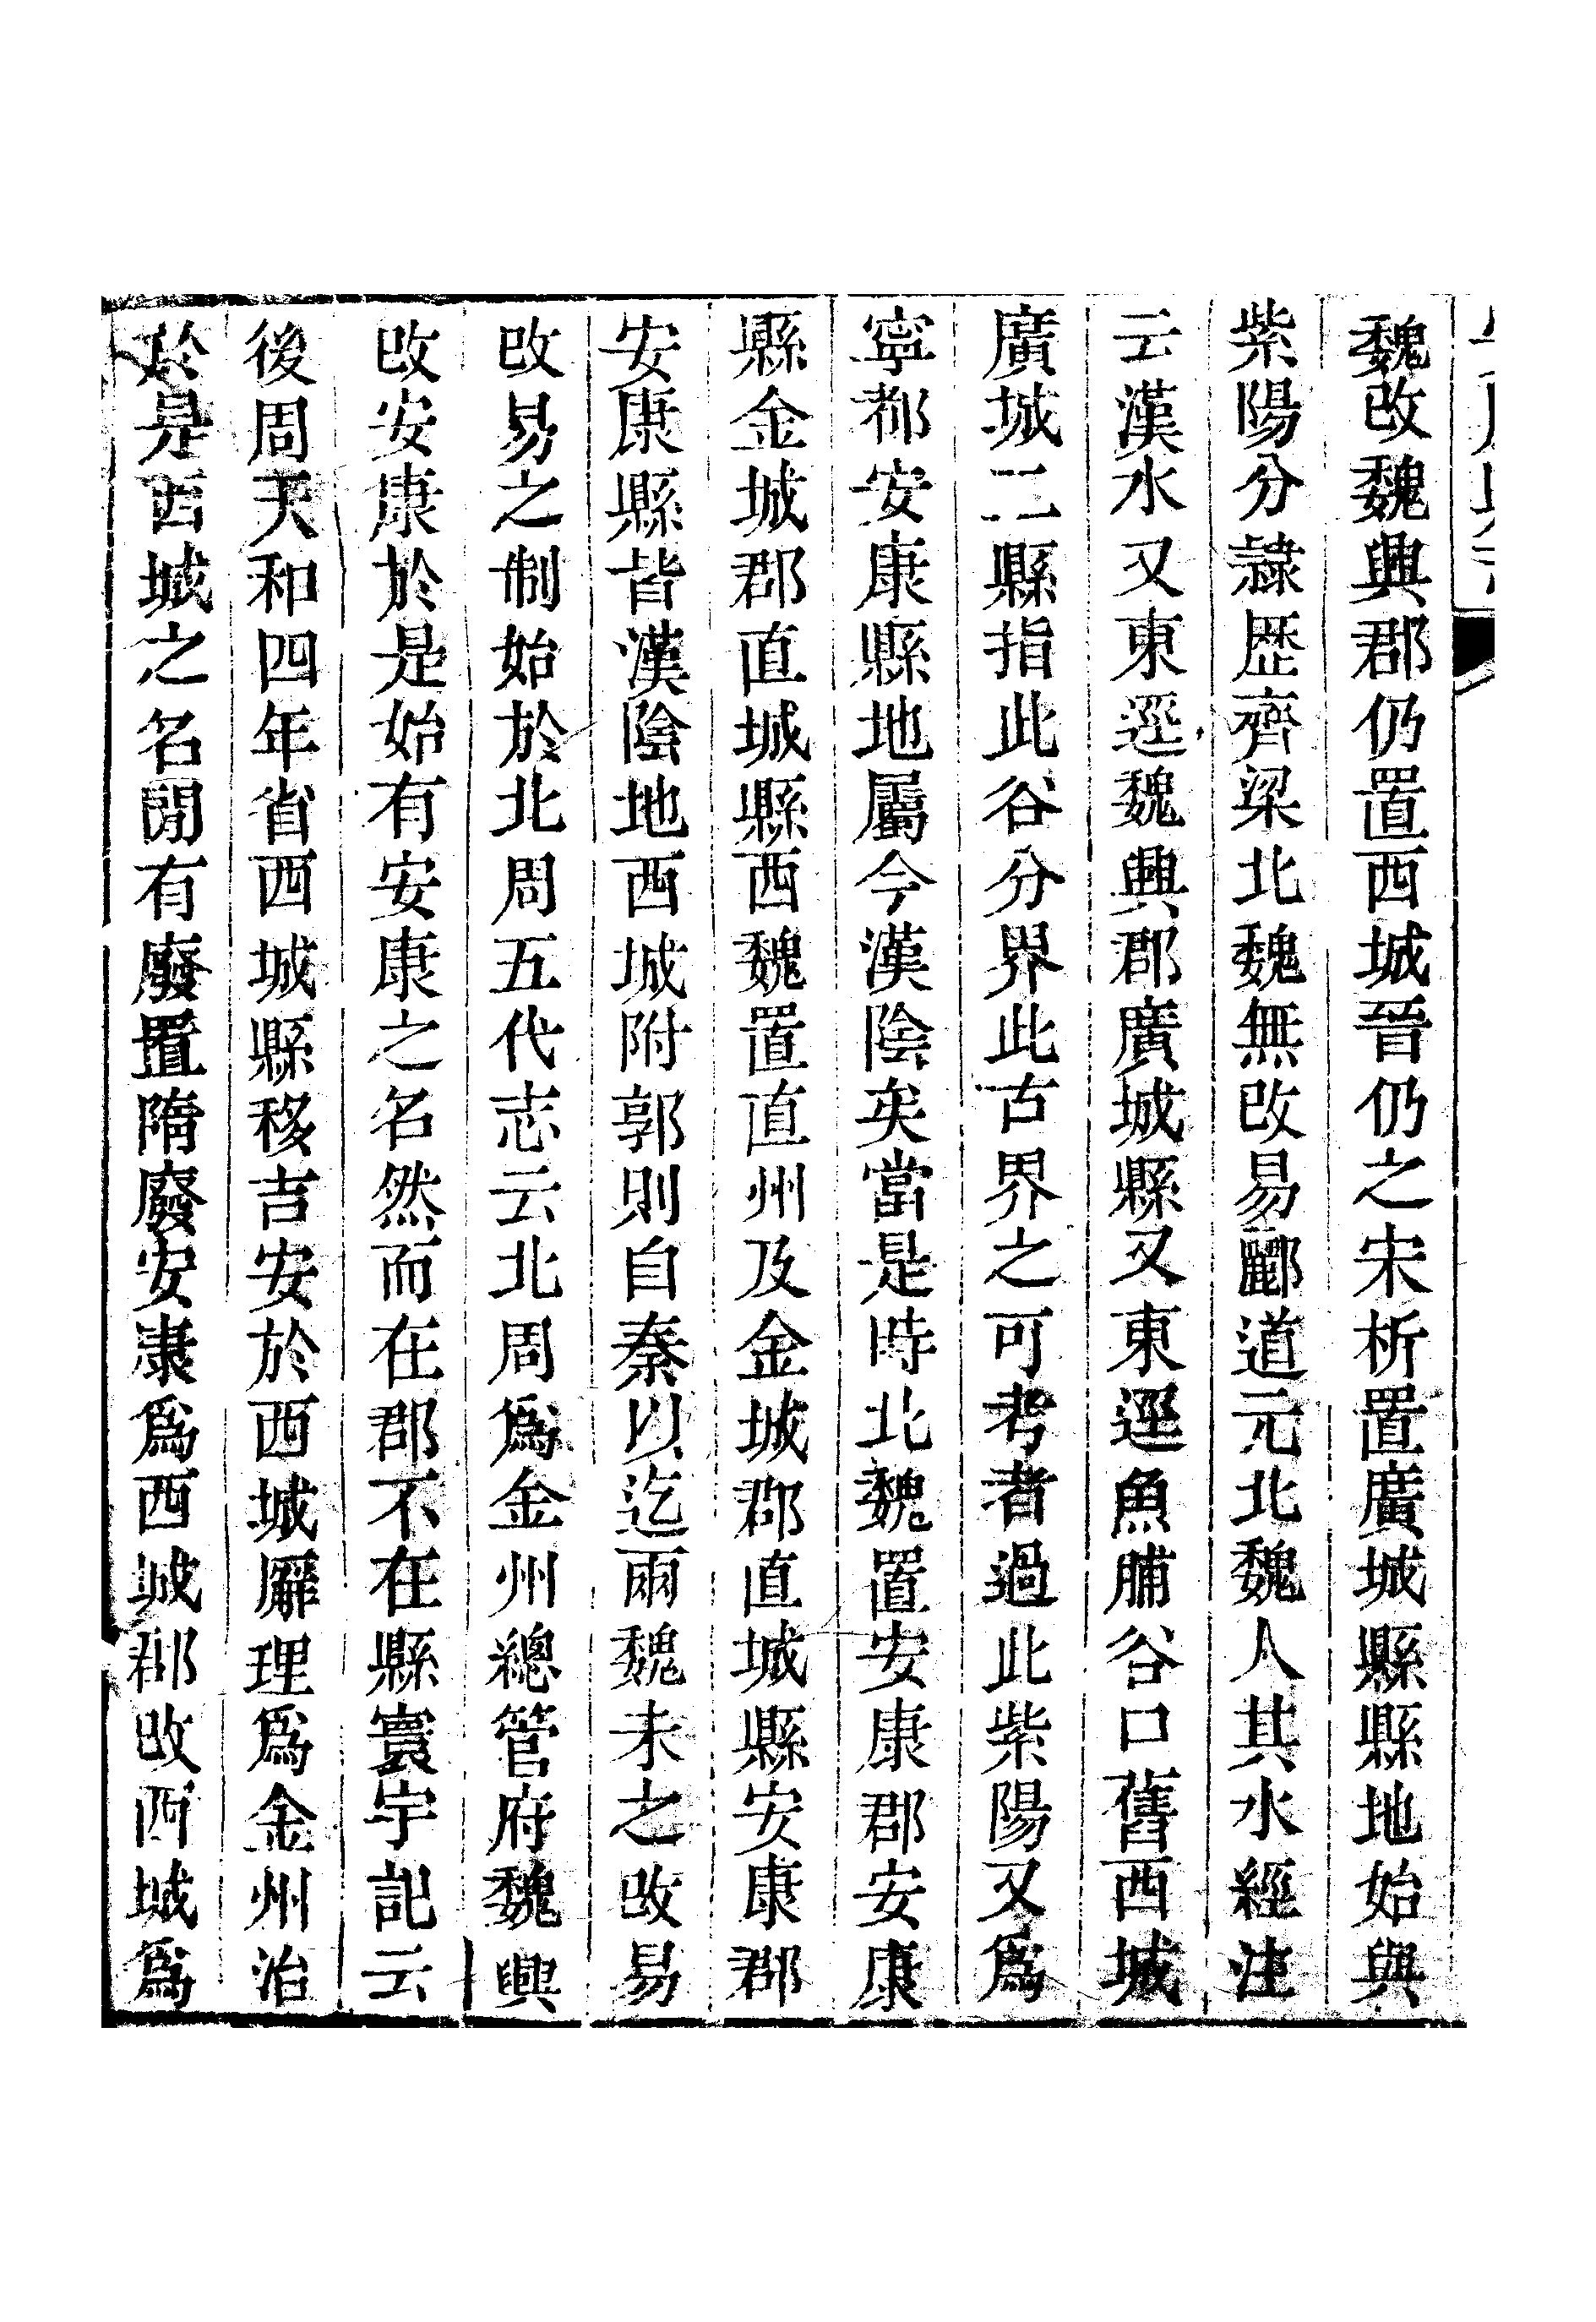 魏改魏興郡仍置西城晉仍之宋析置廣城縣縣地始與
紫陽分隷歴齊梁北魏無改易酈道元北魏人其水經注
云漢水又東逕魏興郡廣城縣又東逕魚脯谷口舊西城
廣城二縣指此谷分界此古界之可考者過此紫陽又為
寧都安康縣地屬今漢陰矣當是時北魏置安康郡安康
縣金城郡直城縣西魏置直州及金城郡直城縣安康郡
安康縣皆漢陰地西城附郭則自秦以迄兩魏未之改易
改易之制始於北周五代志云北周為金州總管府魏興
改安康於是始有安康之名然而在郡不在縣寰宇記云
後周天和四年省西城縣移吉安於西城廨理為金州治
於是西城之名閒有廢置隋廢安康為西城郡改西城為